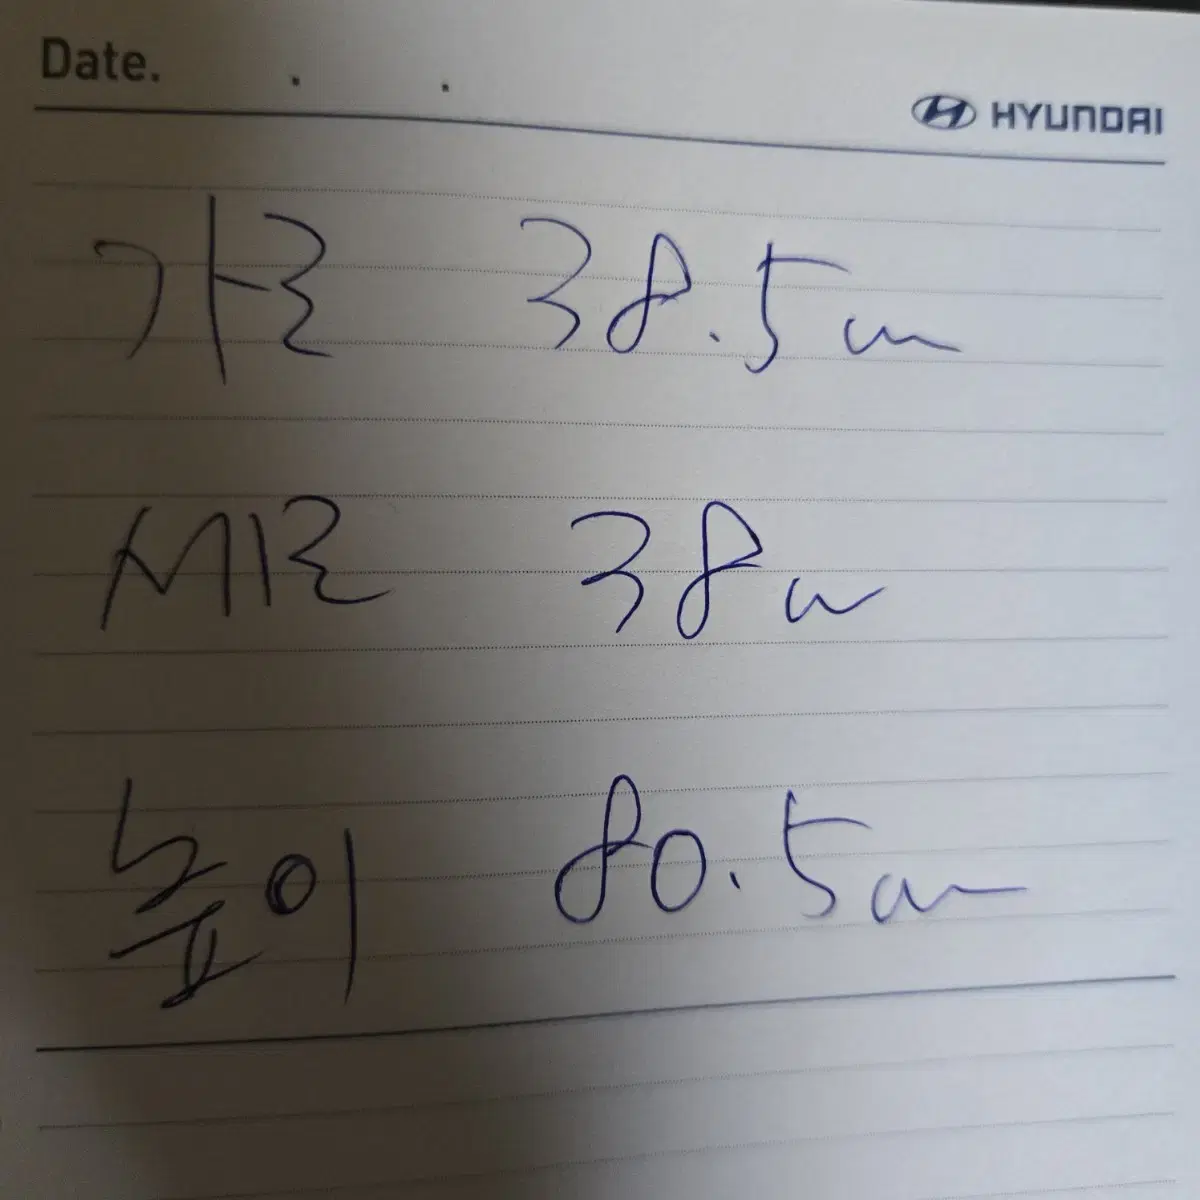 Date. . .
HYUNDAI
가로 38.5cm
세로 38cm
높이 80.5cm